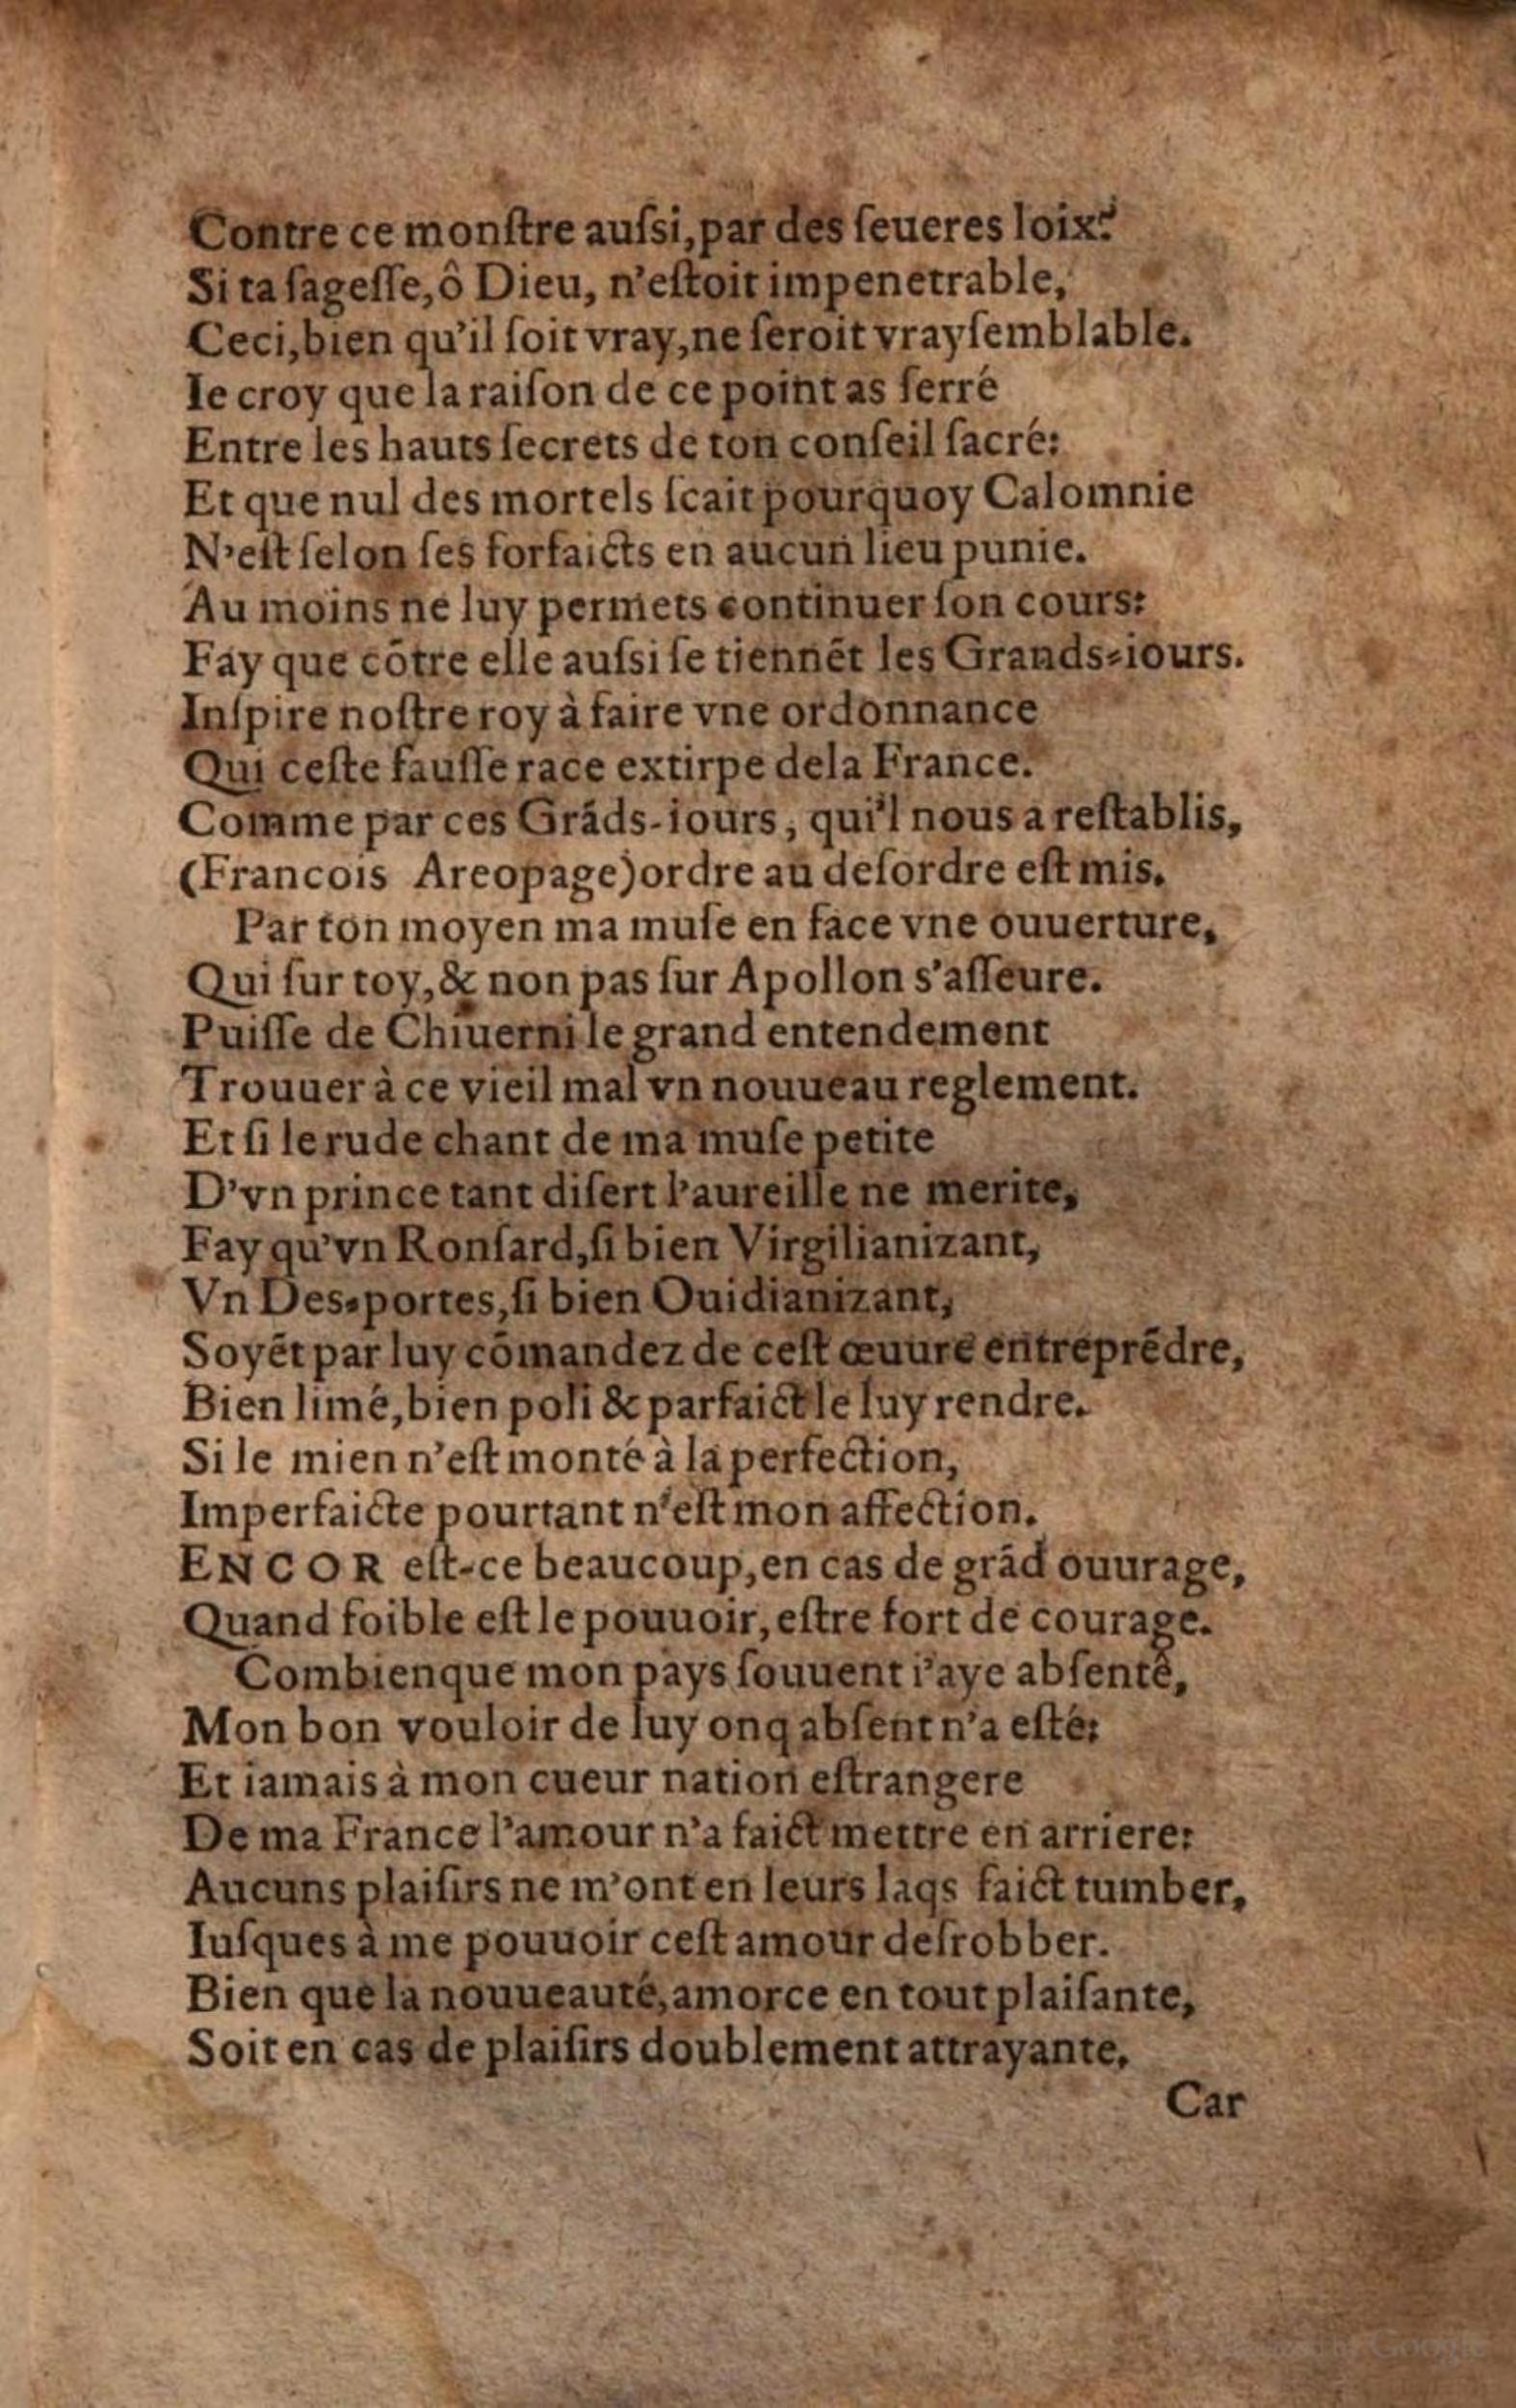 Contre ce monſtre auſsi, par des ſeueres loix?
Si ta ſageſſe, ô Dieu, n'eſtoit impenetrable,
Ceci, bien qu'il ſoit vray, ne ſeroit vrayſemblable.
Ie croy que la raiſon de ce point as ſerré
Entre les hauts ſecrets de ton conſeil ſacré:
Et que nul des mortels ſcait pourquoy Calomnie
N'eſt ſelon ſes forfaicts en aucun lieu punie.
Au moins ne luy permets continuer ſon cours:
Fay que cõtre elle auſsi ſe tiennẽt les Grands-iours.
Inſpire noſtre roy à faire vne ordonnance
Qui ceſte fauſſe race extirpe dela France.
Comme par ces Grãds-iours, qui'l nous a reſtablis,
(Francois Areopage) ordre au deſordre eſt mis.
Par ton moyen ma muſe en face vne ouuerture,
Qui ſur toy, & non pas ſur Apollon s'aſſeure.
Puiſſe de Chiuerni le grand entendement
Trouuer à ce vieil mal vn nouueau reglement.
Et ſi le rude chant de ma muſe petite
D'vn prince tant diſert l'aureille ne merite,
Fay qu'vn Ronſard, ſi bien Virgilianizant,
Vn Des-portes, ſi bien Ouidianizant,
Soyẽt par luy cõmandez de ceſt œuure entreprẽdre,
Bien limé, bien poli & parfaict le luy rendre.
Si le mien n'eſt monté à la perfection,
Imperfaicte pourtant n'eſt mon affection.
ENCOR eſt-ce beaucoup, en cas de grãd ouurage,
Quand foible eſt le pouuoir, eſtre fort de courage.
Combienque mon pays ſouuent i'aye abſenté,
Mon bon vouloir de luy onq abſent n'a eſté:
Et iamais à mon cueur nation eſtrangere
De ma France l'amour n'a faict mettre en arriere:
Aucuns plaiſirs ne m'ont en leurs laqs faict tumber,
Iuſques à me pouuoir ceſt amour deſrobber.
Bien que la nouueauté, amorce en tout plaiſante,
Soit en cas de plaiſirs doublement attrayante,
Car